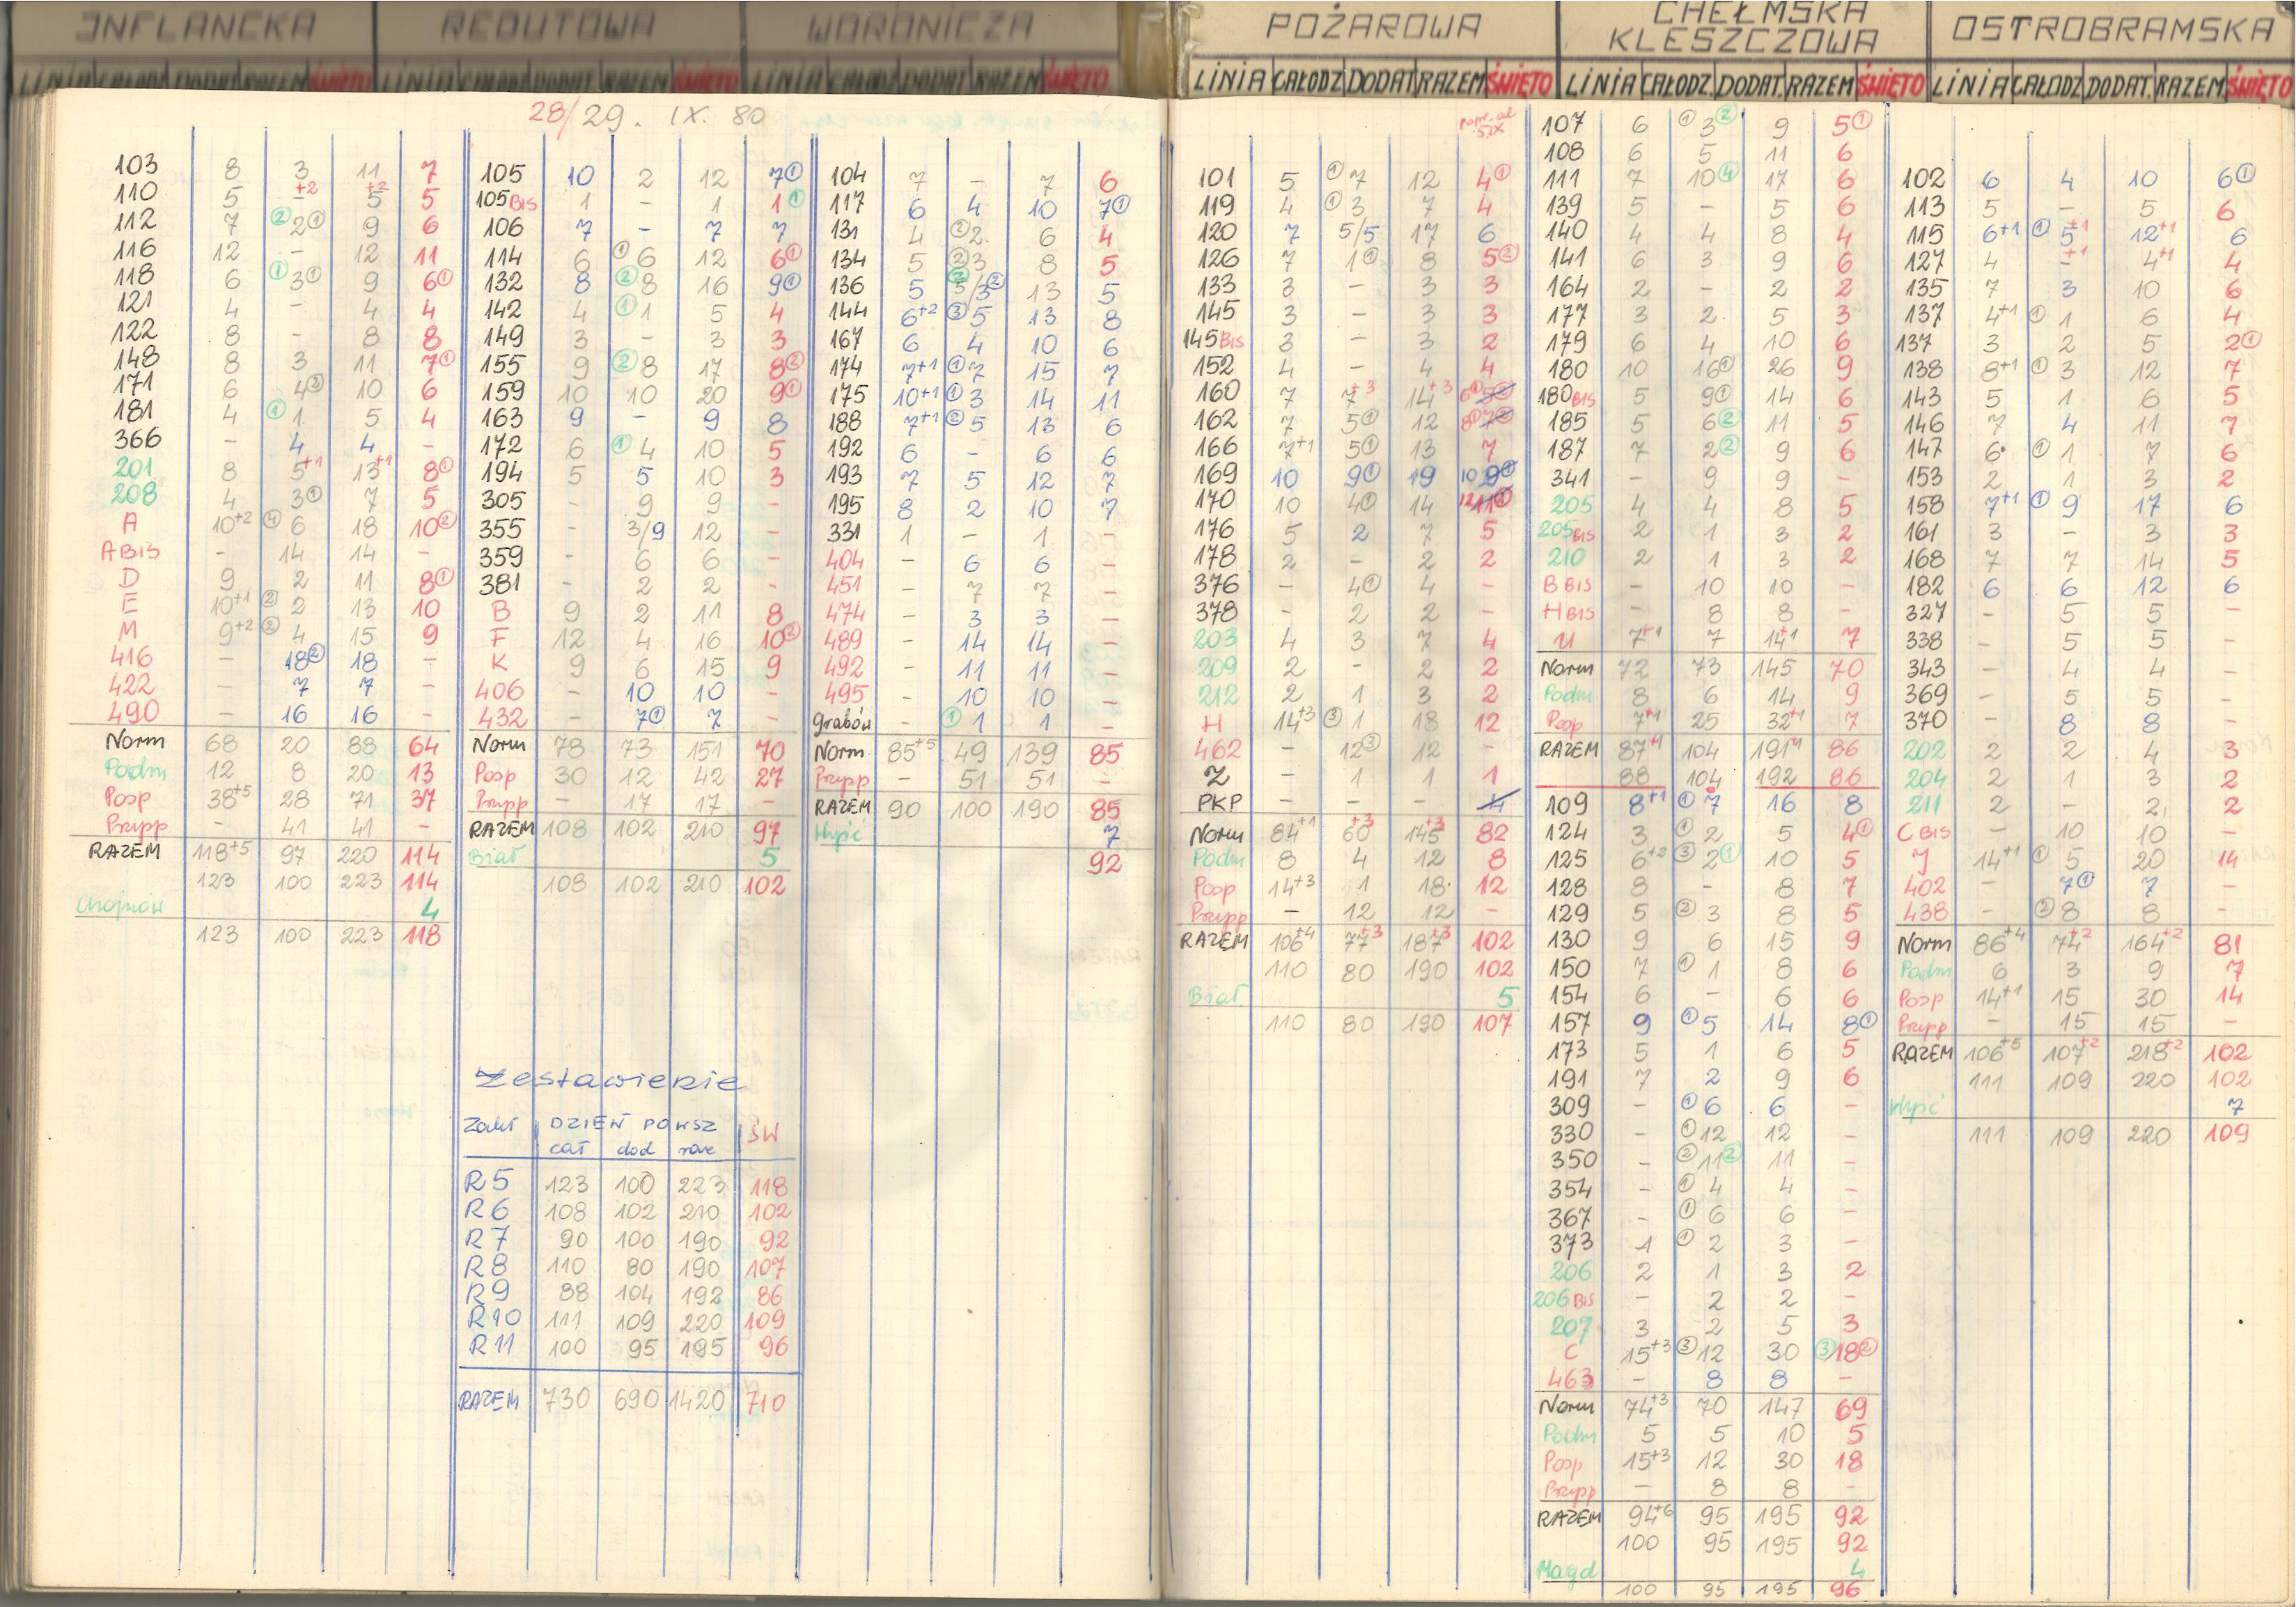 INFLANCKA
LINIA CAŁODZ DODAT RAZEM ŚWIĘTO
28/29. IX. 80
103 8 3 11 7
110 5 - +2 5 +2 5
112 7 ② 2 ① 9 6
116 12 - 12 11
118 6 ① 3 ① 9 6 ①
121 4 - 4 4
122 8 - 8 8
148 8 3 11 7 ①
171 6 4 ② 10 6
181 4 ① 1 5 4
366 - 4 4 -
201 8 5+1 13+1 8 ①
208 4 3 ① 7 5
A 10+2 ④ 6 18 10 ②
A BIS - 14 14 -
D 9 2 11 8 ①
E 10+1 ② 2 13 10
M 9+2 ② 4 15 9
416 - 18 ② 18 -
422 - 7 7 -
490 - 16 16 -
Norm 68 20 88 64
Podm 12 8 20 13
Posp 38+5 28 71 37
Przypp - 41 41 -
RAZEM 118+5 97 220 114
123 100 223 114
Chojnów 4
123 100 223 118
REDUTOWA
LINIA CAŁODZ DODAT RAZEM ŚWIĘTO
105 10 2 12 7 ①
105 BIS 1 - 1 1 ①
106 7 - 7 7
114 6 ① 6 12 6 ①
132 8 ② 8 16 9 ①
142 4 ① 1 5 4
149 3 - 3 3
155 9 ② 8 17 8 ②
159 10 10 20 9 ①
163 9 - 9 8
172 6 ① 4 10 5
194 5 5 10 3
305 - 9 9 -
355 - 3/9 12 -
359 - 6 6 -
381 - 2 2 -
B 9 2 11 8
F 12 4 16 10 ②
K 9 6 15 9
406 - 10 10 -
432 - 7 ① 7 -
Norm 78 73 151 70
Posp 30 12 42 27
Przypp - 17 17 -
RAZEM 108 102 210 97
Biał 5
108 102 210 102
Zestawienie
Zakł DZIEŃ POWSZ ŚW
cał dod raz
R5 123 100 223 118
R6 108 102 210 102
R7 90 100 190 92
R8 110 80 190 107
R9 88 104 192 86
R10 111 109 220 109
R11 100 95 195 96
RAZEM 730 690 1420 710
WORONICZA
LINIA CAŁODZ DODAT RAZEM ŚWIĘTO
104 7 - 7 6
117 6 4 10 7 ①
131 4 ② 2 6 4
134 5 ② 3 8 5
136 5 ② 5/3 ② 13 5
144 6+2 ③ 5 13 8
167 6 4 10 6
174 7+1 ① 7 15 7
175 10+1 ① 3 14 11
188 7+1 ② 5 13 6
192 6 - 6 6
193 7 5 12 7
195 8 2 10 7
331 1 - 1 -
404 - 6 6 -
451 - 7 7 -
474 - 3 3 -
489 - 14 14 -
492 - 11 11 -
495 - 10 10 -
Grabów - ① 1 1 -
Norm 85+5 49 139 85
Przypp - 51 51 -
RAZEM 90 100 190 85
Wyść 7
92
POŻAROWA
LINIA CAŁODZ DODAT RAZEM ŚWIĘTO
popr. od 5.IX
101 5 ① 7 12 4 ①
119 4 ① 3 7 4
120 7 5/5 17 6
126 7 1 ① 8 5 ②
133 3 - 3 3
145 3 - 3 3
145 BIS 3 - 3 2
152 4 - 4 4
160 7 7+3 14+3 6 ① 5 ②
162 7 5 ① 12 8 ① 7 ②
166 7+1 5 ① 13 7
169 10 9 ① 19 10 9 ①
170 10 4 ① 14 12 11 ①
176 5 2 7 5
178 2 - 2 2
376 - 4 ① 4 -
378 - 2 2 -
203 4 3 7 4
209 2 - 2 2
212 2 1 3 2
H 14+3 ③ 1 18 12
462 - 12 ③ 12 -
Z - 1 1 1
PKP - - - 4
Norm 84+1 60+3 145+3 82
Podm 8 4 12 8
Posp 14+3 1 18 12
Przypp - 12 12 -
RAZEM 106+4 77+3 187+3 102
110 80 190 102
Biał 5
110 80 190 107
CHEŁMSKA
KLESZCZOWA
LINIA CAŁODZ. DODAT. RAZEM ŚWIĘTO
107 6 ① 3 ② 9 5 ①
108 6 5 11 6
111 7 10 ④ 17 6
139 5 - 5 6
140 4 4 8 4
141 6 3 9 6
164 2 - 2 2
177 3 2 5 3
179 6 4 10 6
180 10 16 ① 26 9
180 BIS 5 9 ① 14 6
185 5 6 ② 11 5
187 7 2 ② 9 6
341 - 9 9 -
205 4 4 8 5
205 BIS 2 1 3 2
210 2 1 3 2
B BIS - 10 10 -
H BIS - 8 8 -
U 7+1 7 14+1 7
Norm 72 73 145 70
Podm 8 6 14 9
Posp 7+1 25 32+1 7
RAZEM 87+1 104 191+1 86
88 104 192 86
109 8+1 ① 7 16 8
124 3 ① 2 5 4 ①
125 6+2 ③ 2 ① 10 5
128 8 - 8 7
129 5 ② 3 8 5
130 9 6 15 9
150 7 ① 1 8 6
154 6 - 6 6
157 9 ① 5 14 8 ①
173 5 1 6 5
191 7 2 9 6
309 - ① 6 6 -
330 - ① 12 12 -
350 - ② 11 ② 11 -
354 - ① 4 4 -
367 - ① 6 6 -
373 1 ① 2 3 -
206 2 1 3 2
206 BIS - 2 2 -
207 3 2 5 3
C 15+3 ③ 12 30 ③ 18 ②
463 - 8 8 -
Norm 74+3 70 147 69
Podm 5 5 10 5
Posp 15+3 12 30 18
Przypp - 8 8 -
RAZEM 94+6 95 195 92
100 95 195 92
Magd 4
100 95 195 96
OSTROBRAMSKA
LINIA CAŁODZ DODAT. RAZEM ŚWIĘTO
102 6 4 10 6 ①
113 5 - 5 6
115 6+1 ① 5+1 12+1 6
127 4 - +1 4+1 4
135 7 3 10 6
137 4+1 ① 1 6 4
137 3 2 5 2 ①
138 8+1 ① 3 12 7
143 5 1 6 5
146 7 4 11 7
147 6 ① 1 7 6
153 2 1 3 2
158 7+1 ① 9 17 6
161 3 - 3 3
168 7 7 14 5
182 6 6 12 6
327 - 5 5 -
338 - 5 5 -
343 - 4 4 -
369 - 5 5 -
370 - 8 8 -
202 2 2 4 3
204 2 1 3 2
211 2 - 2 2
C BIS - 10 10 -
J 14+1 ① 5 20 14
402 - 7 ① 7 -
438 - ② 8 8 -
Norm 86+4 74+2 164+2 81
Podm 6 3 9 7
Posp 14+1 15 30 14
Przypp - 15 15 -
RAZEM 106+5 107+2 218+2 102
111 109 220 102
Wyść 7
111 109 220 109